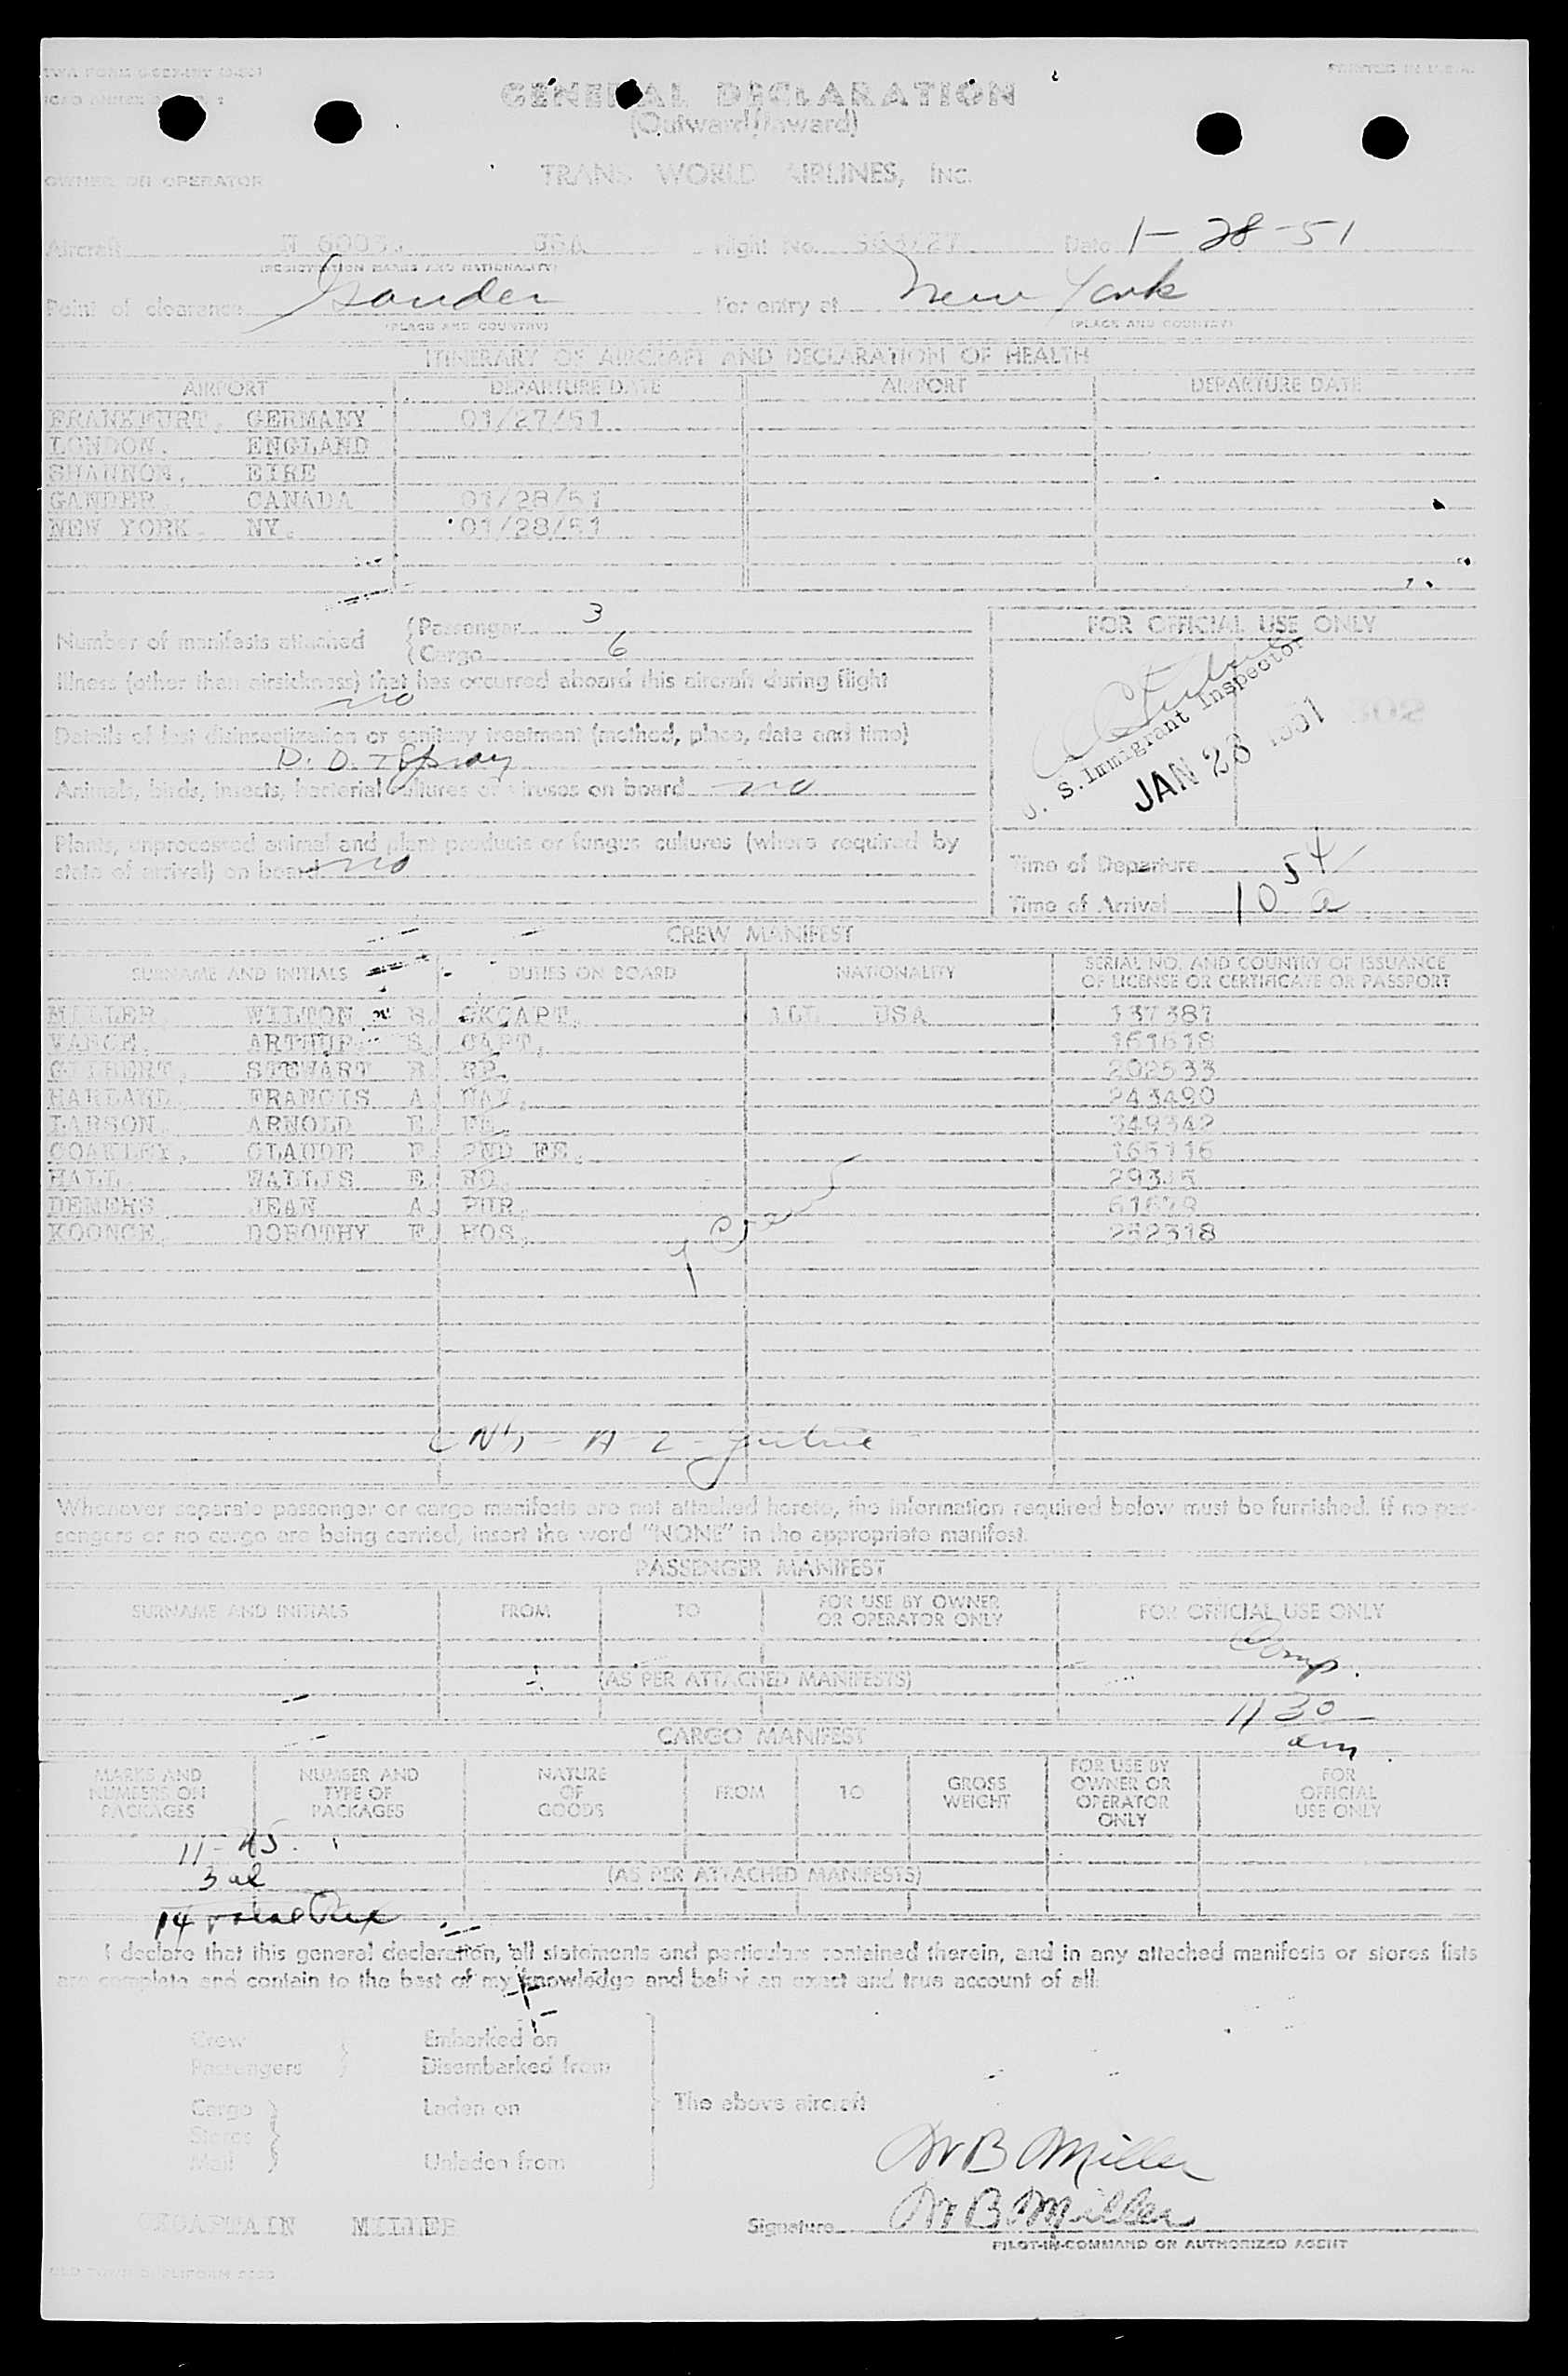 PRINTED IN U.S.A.
GENERAL DECLARATION
(Outward/Inward)
OWNER OR OPERATOR TRANS WORLD AIRLINES, INC.
Aircraft USA Flight No. Date 1-28-51
(REGISTRATION MARKS AND NATIONALITY)
Point of clearance Gander For entry at New York
(PLACE AND COUNTRY) (PLACE AND COUNTRY)
ITINERARY OF AIRCRAFT AND DECLARATION OF HEALTH
AIRPORT DEPARTURE DATE AIRPORT DEPARTURE DATE
FRANKFURT, GERMANY 01/27/51
LONDON, ENGLAND
SHANNON, EIRE
GANDER, CANADA 01/28/51
NEW YORK, NY. 01/28/51
Number of manifests attached
(Passenger 3
(Cargo 6
Illness (other than airsickness) that has occurred aboard this aircraft during flight
no
Details of last disinsectization or sanitary treatment (method, place, date and time)
D.D.T Spray
Animals, birds, insects, bacterial cultures or viruses on board no
Plants, unprocessed animal and plant products or fungus cultures (where required by
state of arrival) on board no
FOR OFFICIAL USE ONLY
U. S. Immigrant Inspector
JAN 28 1951
Time of Departure
Time of Arrival 10 54 a
CREW MANIFEST
SURNAME AND INITIALS DUTIES ON BOARD NATIONALITY SERIAL NO. AND COUNTRY OF ISSUANCE
OF LICENSE OR CERTIFICATE OR PASSPORT
MILLER, WILTON B. CKCAPT. ALL USA 137387
VANCE, ARTHUR S. CAPT. 161618
GILBERT, STEWART R. 202533
HARLAND, FRANCIS A. NAV. 243490
LARSON, ARNOLD E. FE. 349342
COAKLEY, CLAUDE F. 2ND FE. 165116
HALL, WALLIS E. RO.
DEMERS JEAN A. PUR.
KOONCE, DOROTHY E. HOS. 252318
9 Crew
Whenever separate passenger or cargo manifests are not attached hereto, the information required below must be furnished. If no pas-
sengers or no cargo are being carried, insert the word "NONE" in the appropriate manifest.
PASSENGER MANIFEST
SURNAME AND INITIALS FROM TO FOR USE BY OWNER
OR OPERATOR ONLY FOR OFFICIAL USE ONLY
Comp.
(AS PER ATTACHED MANIFESTS)
11 30
am
CARGO MANIFEST
MARKS AND
NUMBERS ON
PACKAGES
NUMBER AND
TYPE OF
PACKAGES
NATURE
OF
GOODS
FROM TO
GROSS
WEIGHT
FOR USE BY
OWNER OR
OPERATOR
ONLY
FOR
OFFICIAL
USE ONLY
(AS PER ATTACHED MANIFESTS)
I declare that this general declaration, all statements and particulars contained therein, and in any attached manifests or stores lists
are complete and contain to the best of my knowledge and belief an exact and true account of all:
Crew
Passengers
Embarked on
Disembarked from
Cargo
Stores
Mail
Laden on
Unladen from
The above aircraft
W B Miller
CKCAPTAIN MILLER Signature W B Miller
PILOT-IN-COMMAND OR AUTHORIZED AGENT